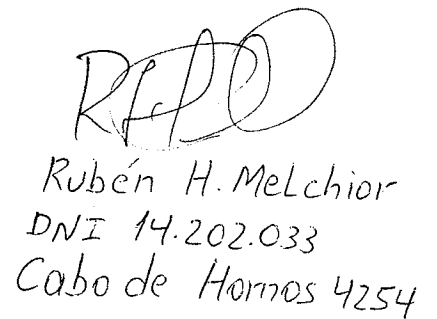 Rubén H. Melchior
DNI 14.202.033
Cabo de Hornos 4254